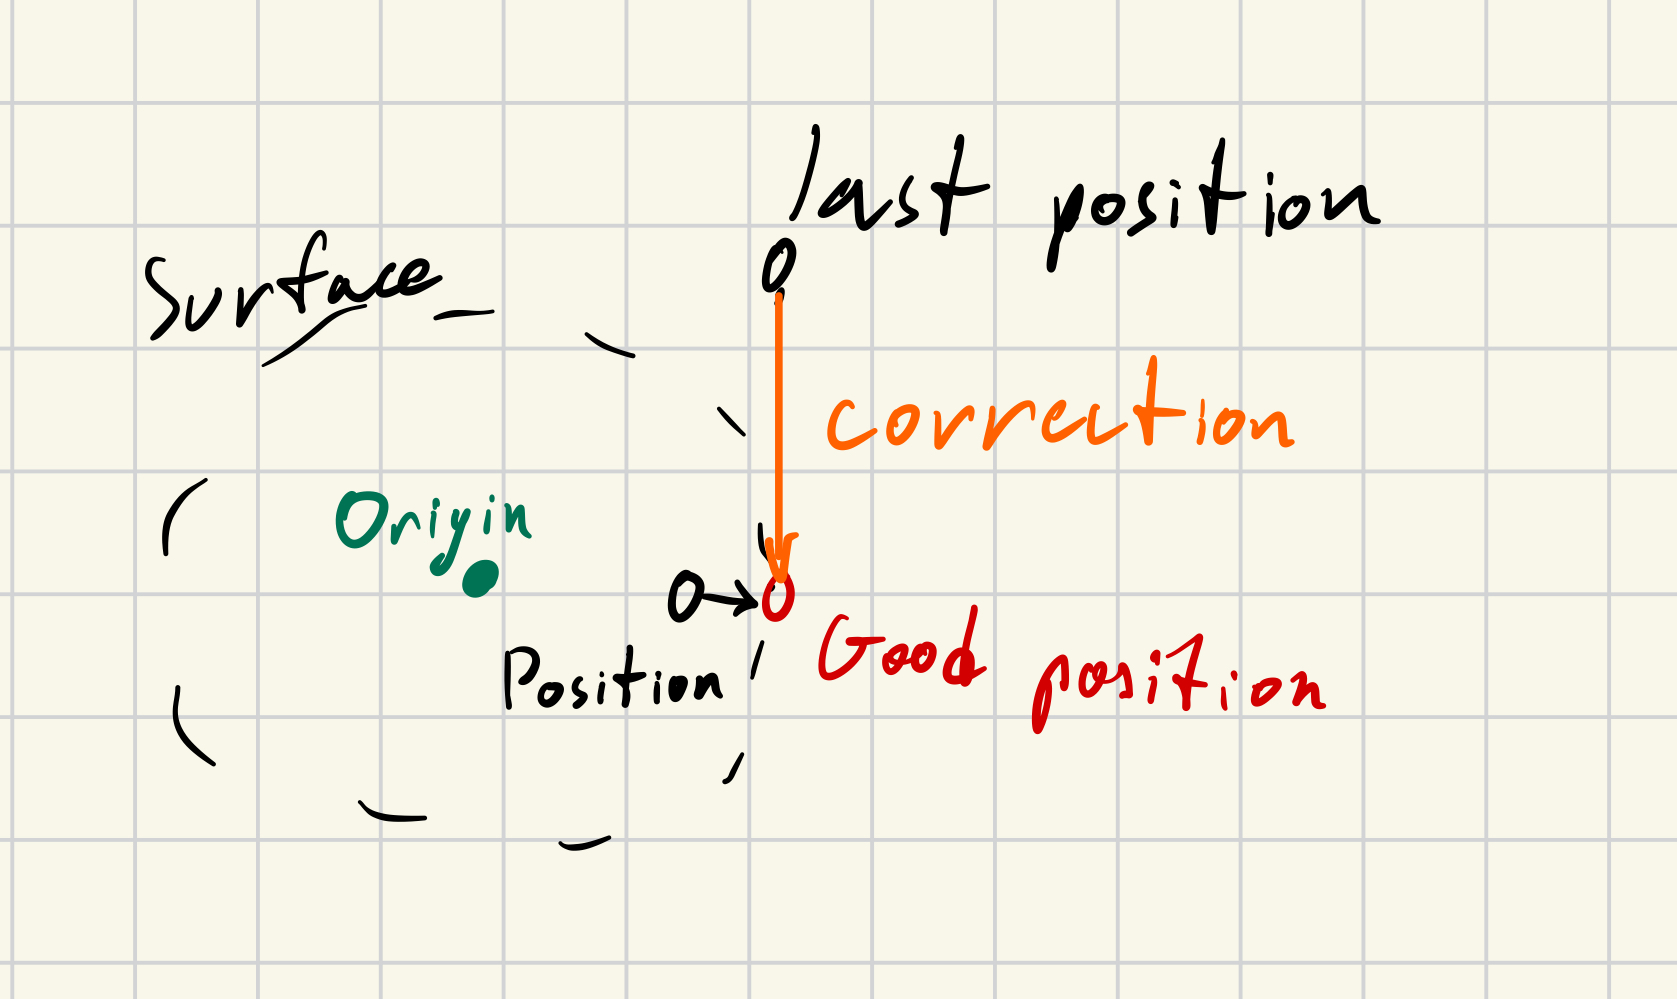 last position
Surface
correction
Origin
Position
Good position